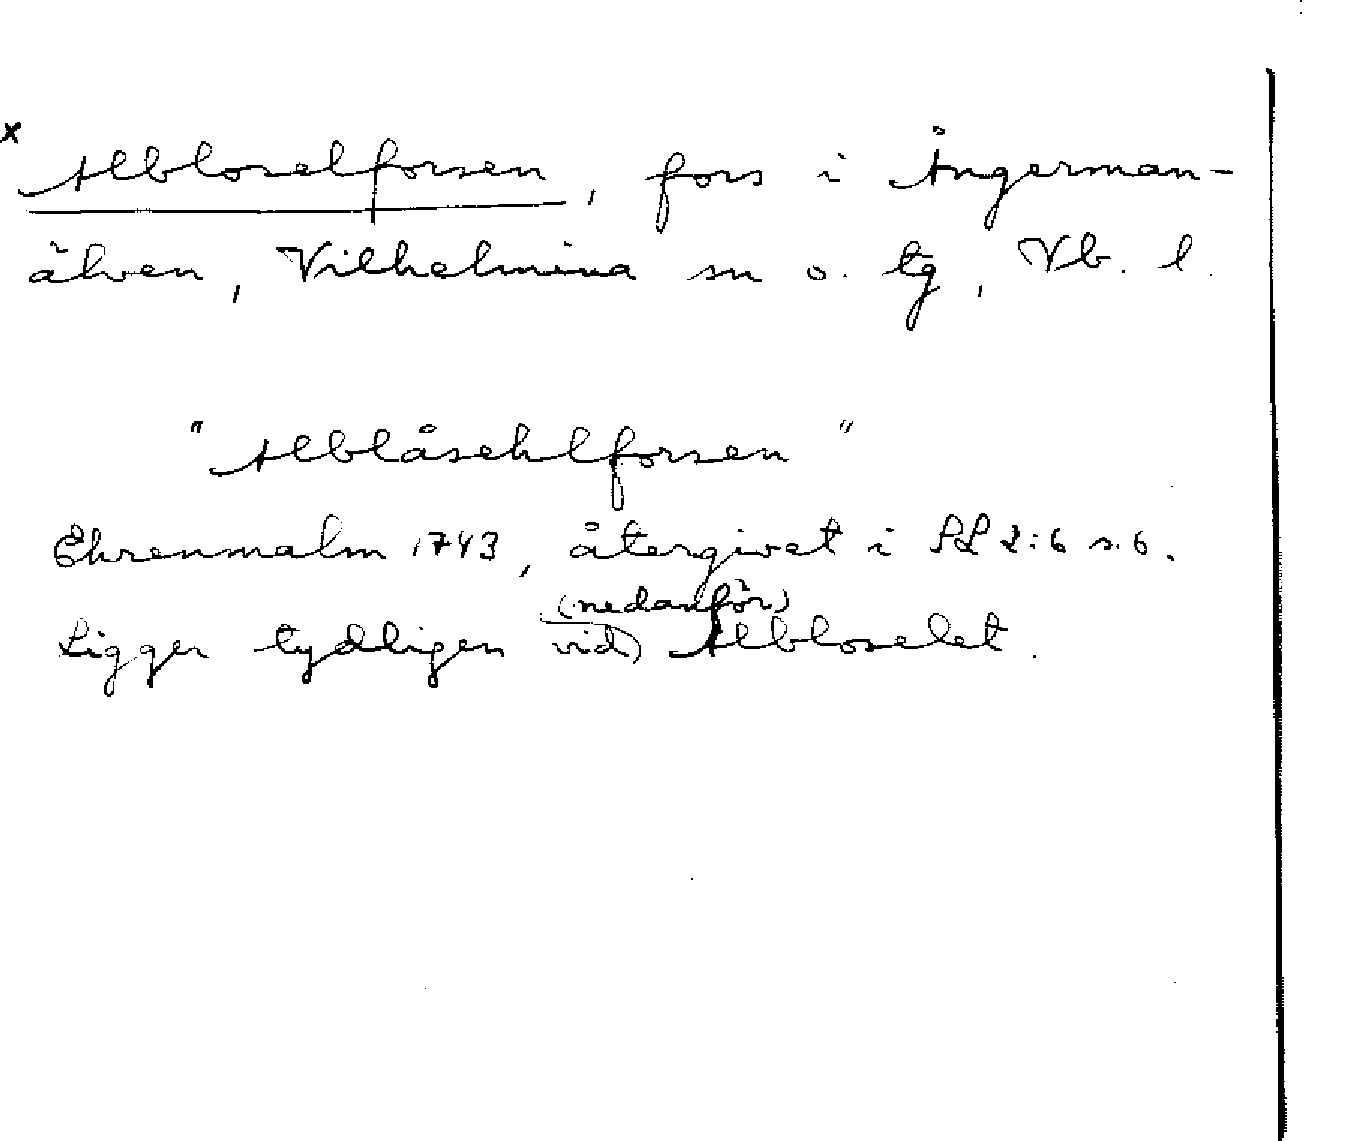 x
Albloselforsen, fors i Ångerman-
älven, Vilhelmina sn o. tg, Vb. l.
"Alblåsehlforsen"
Ehrenmalm 1743, återgivet i SL 2:6 s. 6.
(nedanför)
Ligger tydligen vid) Albloselet.